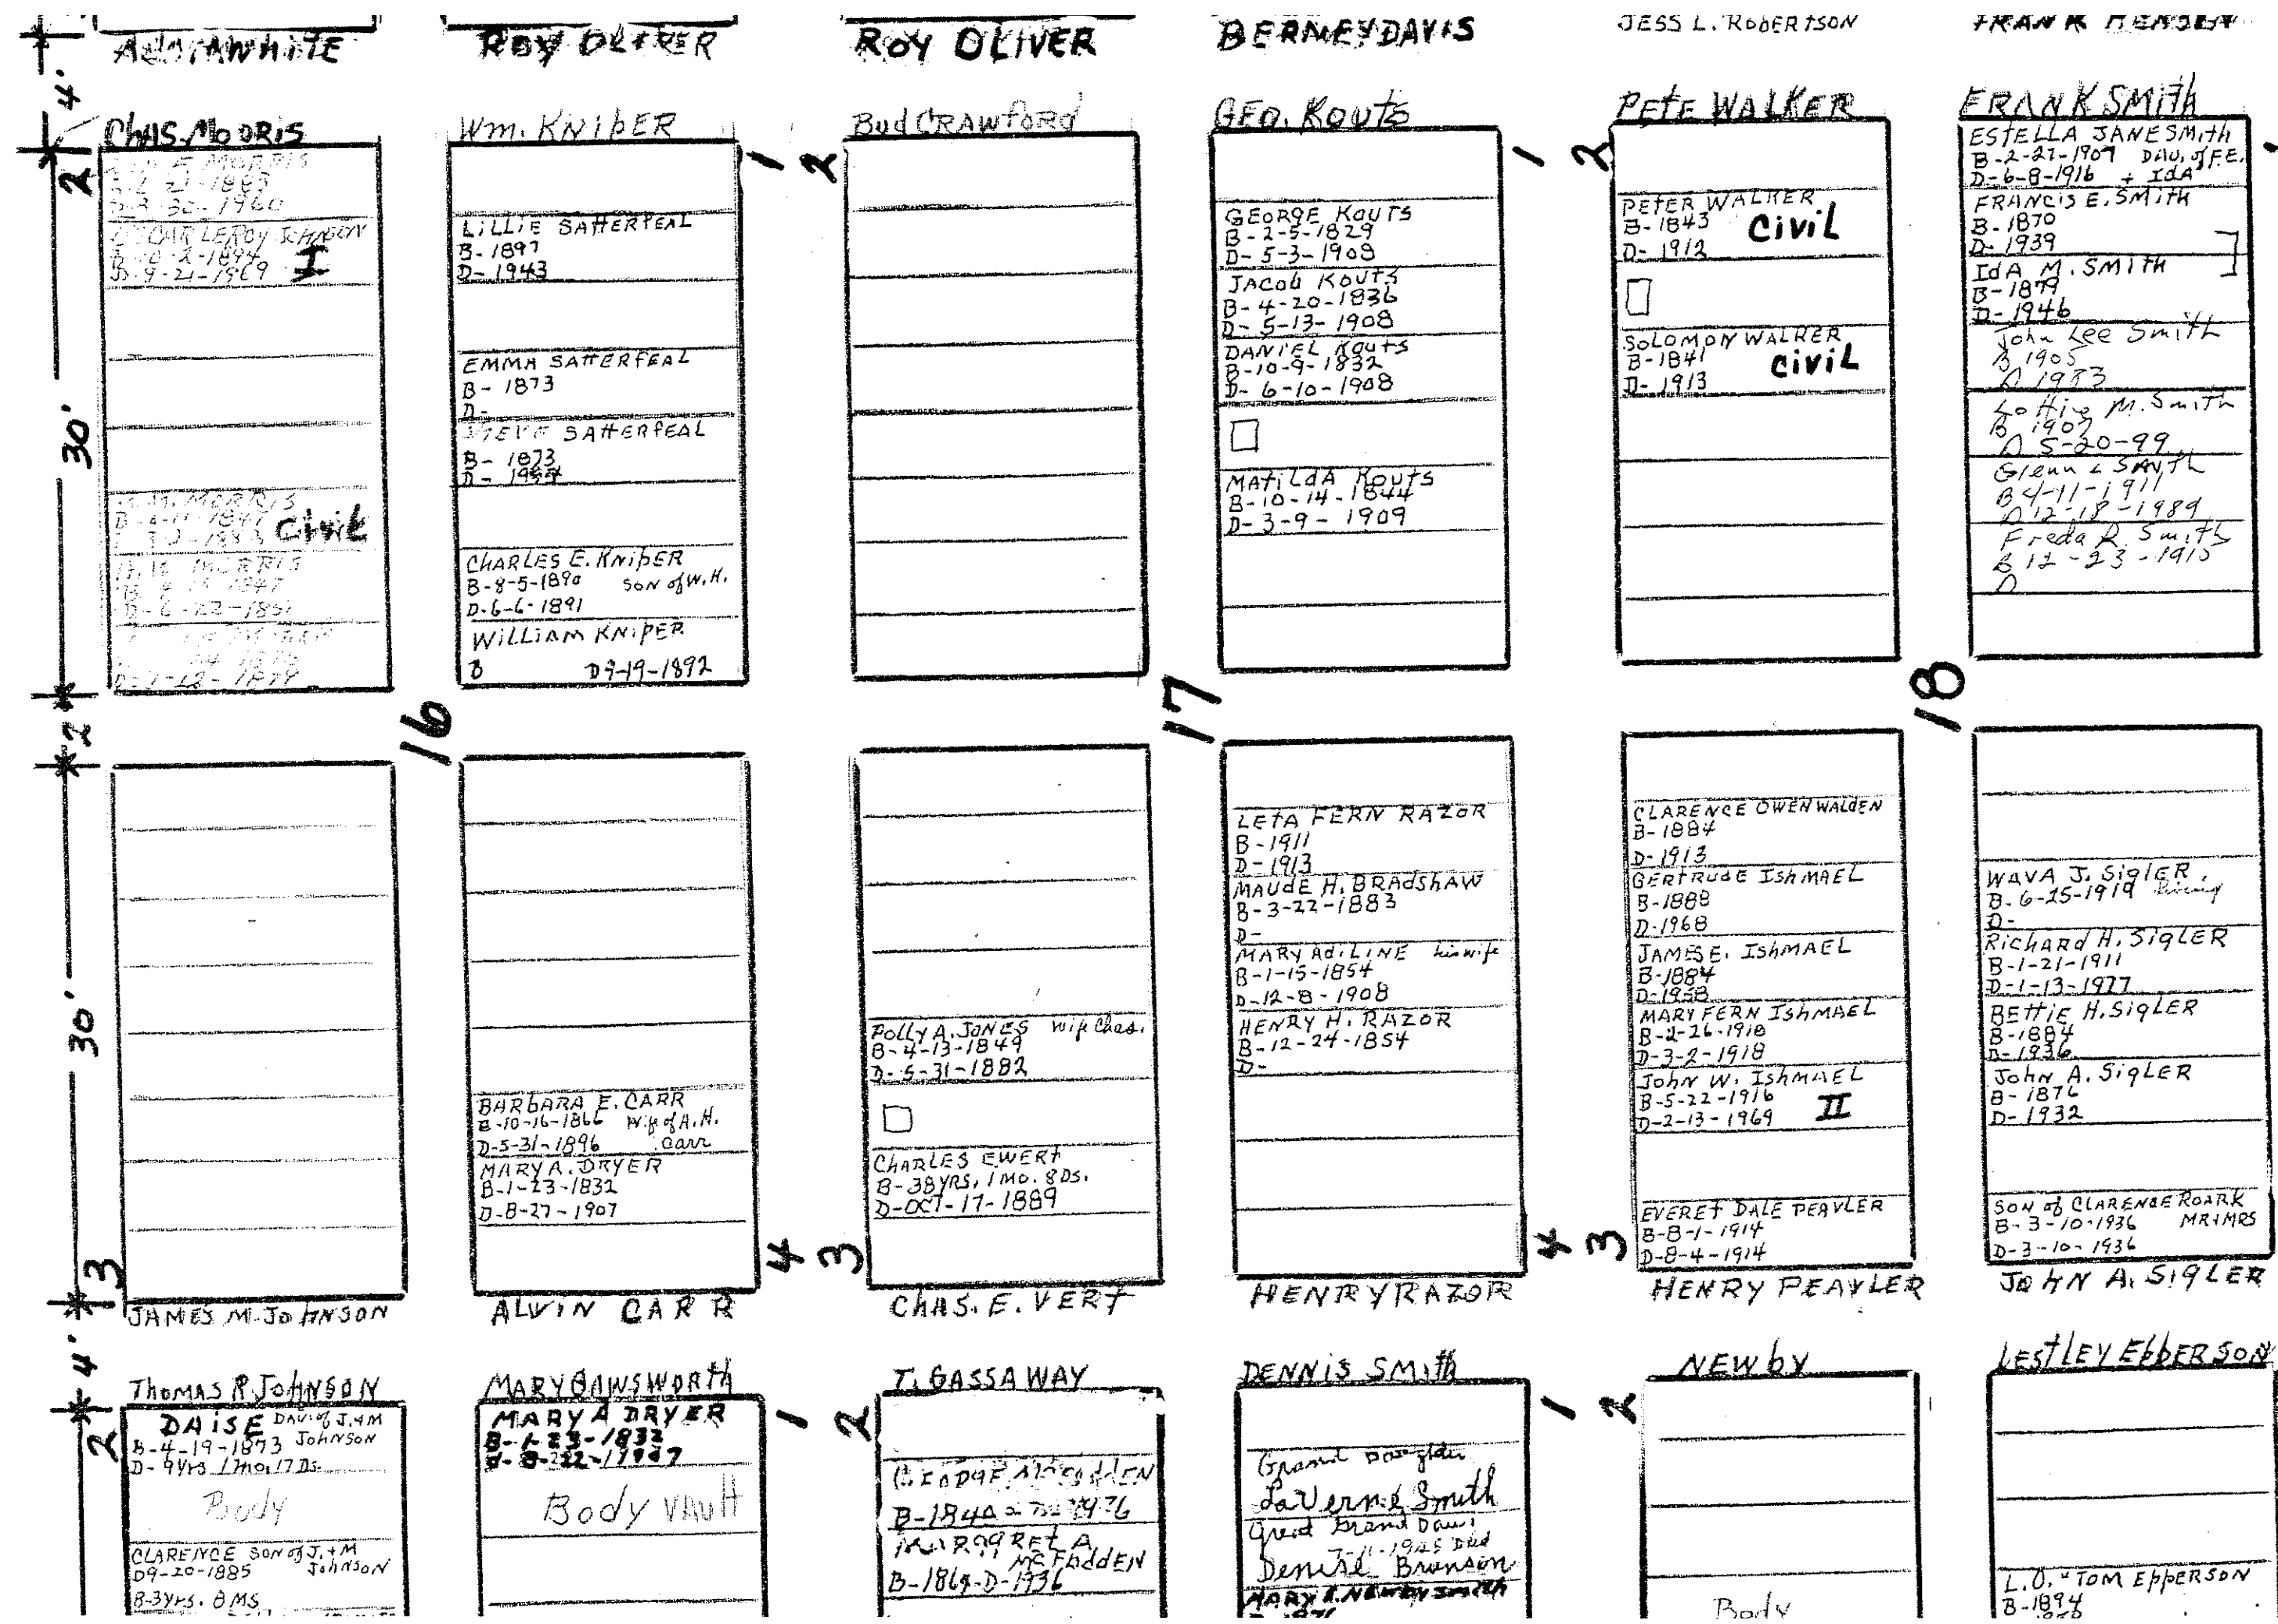 ROY OLIVER
ROY OLIVER
BERNEY DAVIS
JESS L. ROBERTSON
4'
CHAS. MORRIS
Wm. KNIPER
Bud CRAWFORD
GEO. KOUTS
PETE WALKER
FRANK SMITH
2
MORRIS
1960
OSCAR LEROY JOHNSON
B-10-2-1894
D-9-21-1969 I
30'
MORRIS
Civil
MORRIS
1
LILLIE SATTERFEAL
B-1897
D-1943
EMMA SATTERFEAL
B-1873
D-
STEVE SATTERFEAL
B-1873
D-
CHARLES E. KNIPER
B-8-5-1890 SON of W.H.
D-6-6-1891
WILLIAM KNIPER
B D9-19-1892
2
GEORGE KOUTS
B-2-5-1829
D-5-3-1908
JACOB KOUTS
B-4-20-1836
D-5-13-1908
DANIEL KOUTS
B-10-9-1832
D-6-10-1908
MATILDA KOUTS
B-10-14-1844
D-3-9-1909
1
2
PETER WALKER
B-1843 CIVIL
D-1912
SOLOMON WALKER
B-1841 CIVIL
D-1913
ESTELLA JANE SMITH
B-2-27-1907 DAU. of F.E.
D-6-8-1916 + IDA
FRANCIS E. SMITH
B-1870
D-1939
IDA M. SMITH
B-1879
D-1946
John Lee Smith
B 1905
D 1983
Lottie M. Smith
B 1907
D 5-20-99
Glenn L Smith
B 4-11-1911
D 12-18-1989
Freda R. Smith
B 12-23-1910
D
2
16
17
18
30'
3
JAMES M. JOHNSON
BARBARA E. CARR
B-10-16-1866 Wife of A.H.
D-5-31-1896 Carr
MARY A. DRYER
B-1-23-1832
D-8-27-1907
4
ALVIN CARR
3
POLLY A. JONES Wife Chas.
B-4-13-1849
D-5-31-1882
CHARLES EWERT
B-38YRS, 1MO. 8DS.
D-OCT-17-1889
CHAS. E. VERT
LETA FERN RAZOR
B-1911
D-1913
MAUDE H. BRADSHAW
B-3-22-1883
D-
MARY ADILINE his wife
B-1-15-1854
D-12-8-1908
HENRY H. RAZOR
B-12-24-1854
D-
4
HENRY RAZOR
3
CLARENCE OWEN WALDEN
B-1884
D-1913
GERTRUDE ISHMAEL
B-1888
D-1968
JAMES E. ISHMAEL
B-1884
D-1958
MARY FERN ISHMAEL
B-2-26-1918
D-3-2-1918
JOHN W. ISHMAEL
B-5-22-1916
D-2-13-1969 II
EVERET DALE PEAVLER
B-8-1-1914
D-8-4-1914
HENRY PEAVLER
WAVA J. SIGLER
B-6-25-1919
D-
RICHARD H. SIGLER
B-1-21-1911
D-1-13-1977
BETTIE H. SIGLER
B-1884
D-1936
JOHN A. SIGLER
B-1876
D-1932
SON of CLARENCE ROARK
B-3-10-1936 MR+MRS
D-3-10-1936
JOHN A. SIGLER
4'
THOMAS R. JOHNSON
MARY GAWSWORTH
T. GASSAWAY
DENNIS SMITH
NEWBY
LESTLEY EPPERSON
2
DAISE DAU. of J.+M
B-4-19-1873 JOHNSON
D-9Yrs 1mo. 17Ds.
Body
CLARENCE SON of J.+M
D9-20-1885 JOHNSON
B-3Yrs. 8MS
1
MARY A DRYER
B-1-23-1832
Body VAULT
2
McFADDEN
MARGRET A
McFADDEN
B-1864-D-1936
1
Grand Daughter
LaVerne Smith
Great Grand Dau.
7-11-1945 Died
Denise Brunson
MARY E. NEWBY SMITH
2
Body
L.O. "TOM EPPERSON
B-1894